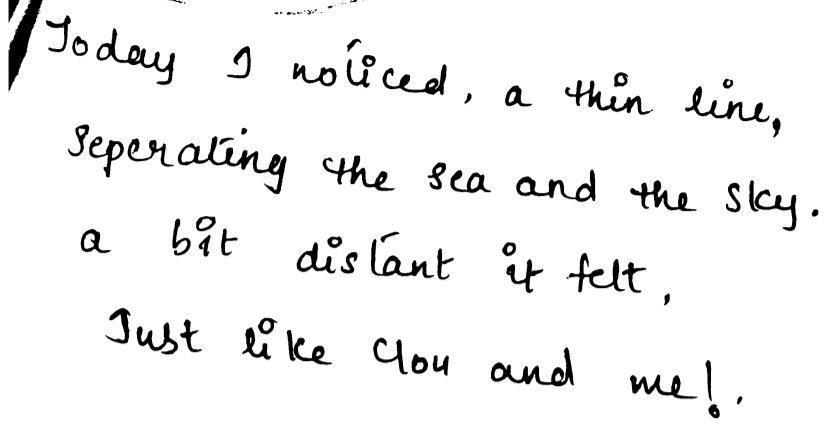 Today I noticed, a thin line,
Seperating the sea and the sky.
a bit distant it felt,
Just like you and me!.